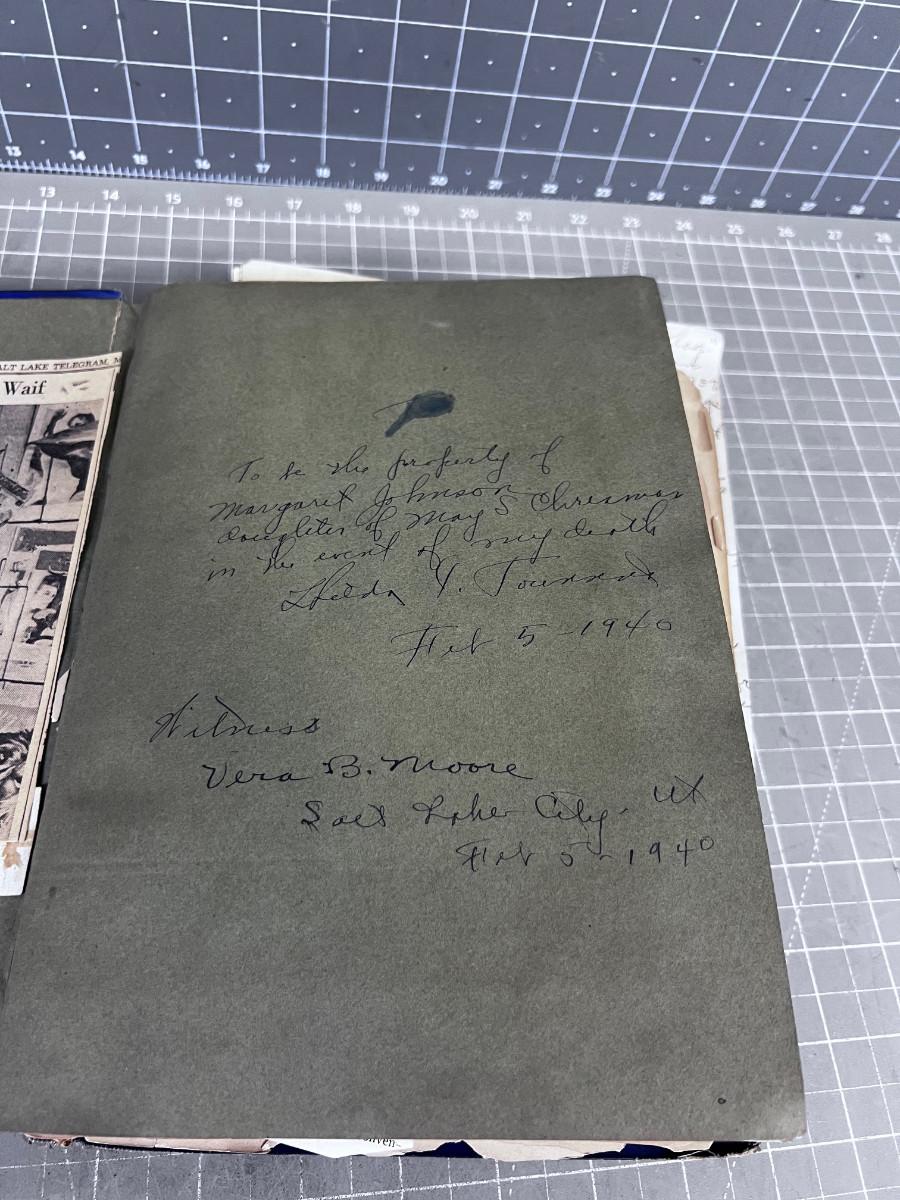 13 14 15 16 17 18 19 20 21 22 23 24 25 26 27 28
13 14 15 16 17 18 19 20 21 22 23 24 25 26 27 28
ALT LAKE TELEGRAM, M
Waif
To be the property of
Margaret Johnson
daughter of May S Chresman
in the event of my death
Y. Townsend
Feb 5-1940
Witness
Vera B. Moore
Salt Lake City. Ut
Feb 5-1940
nven-